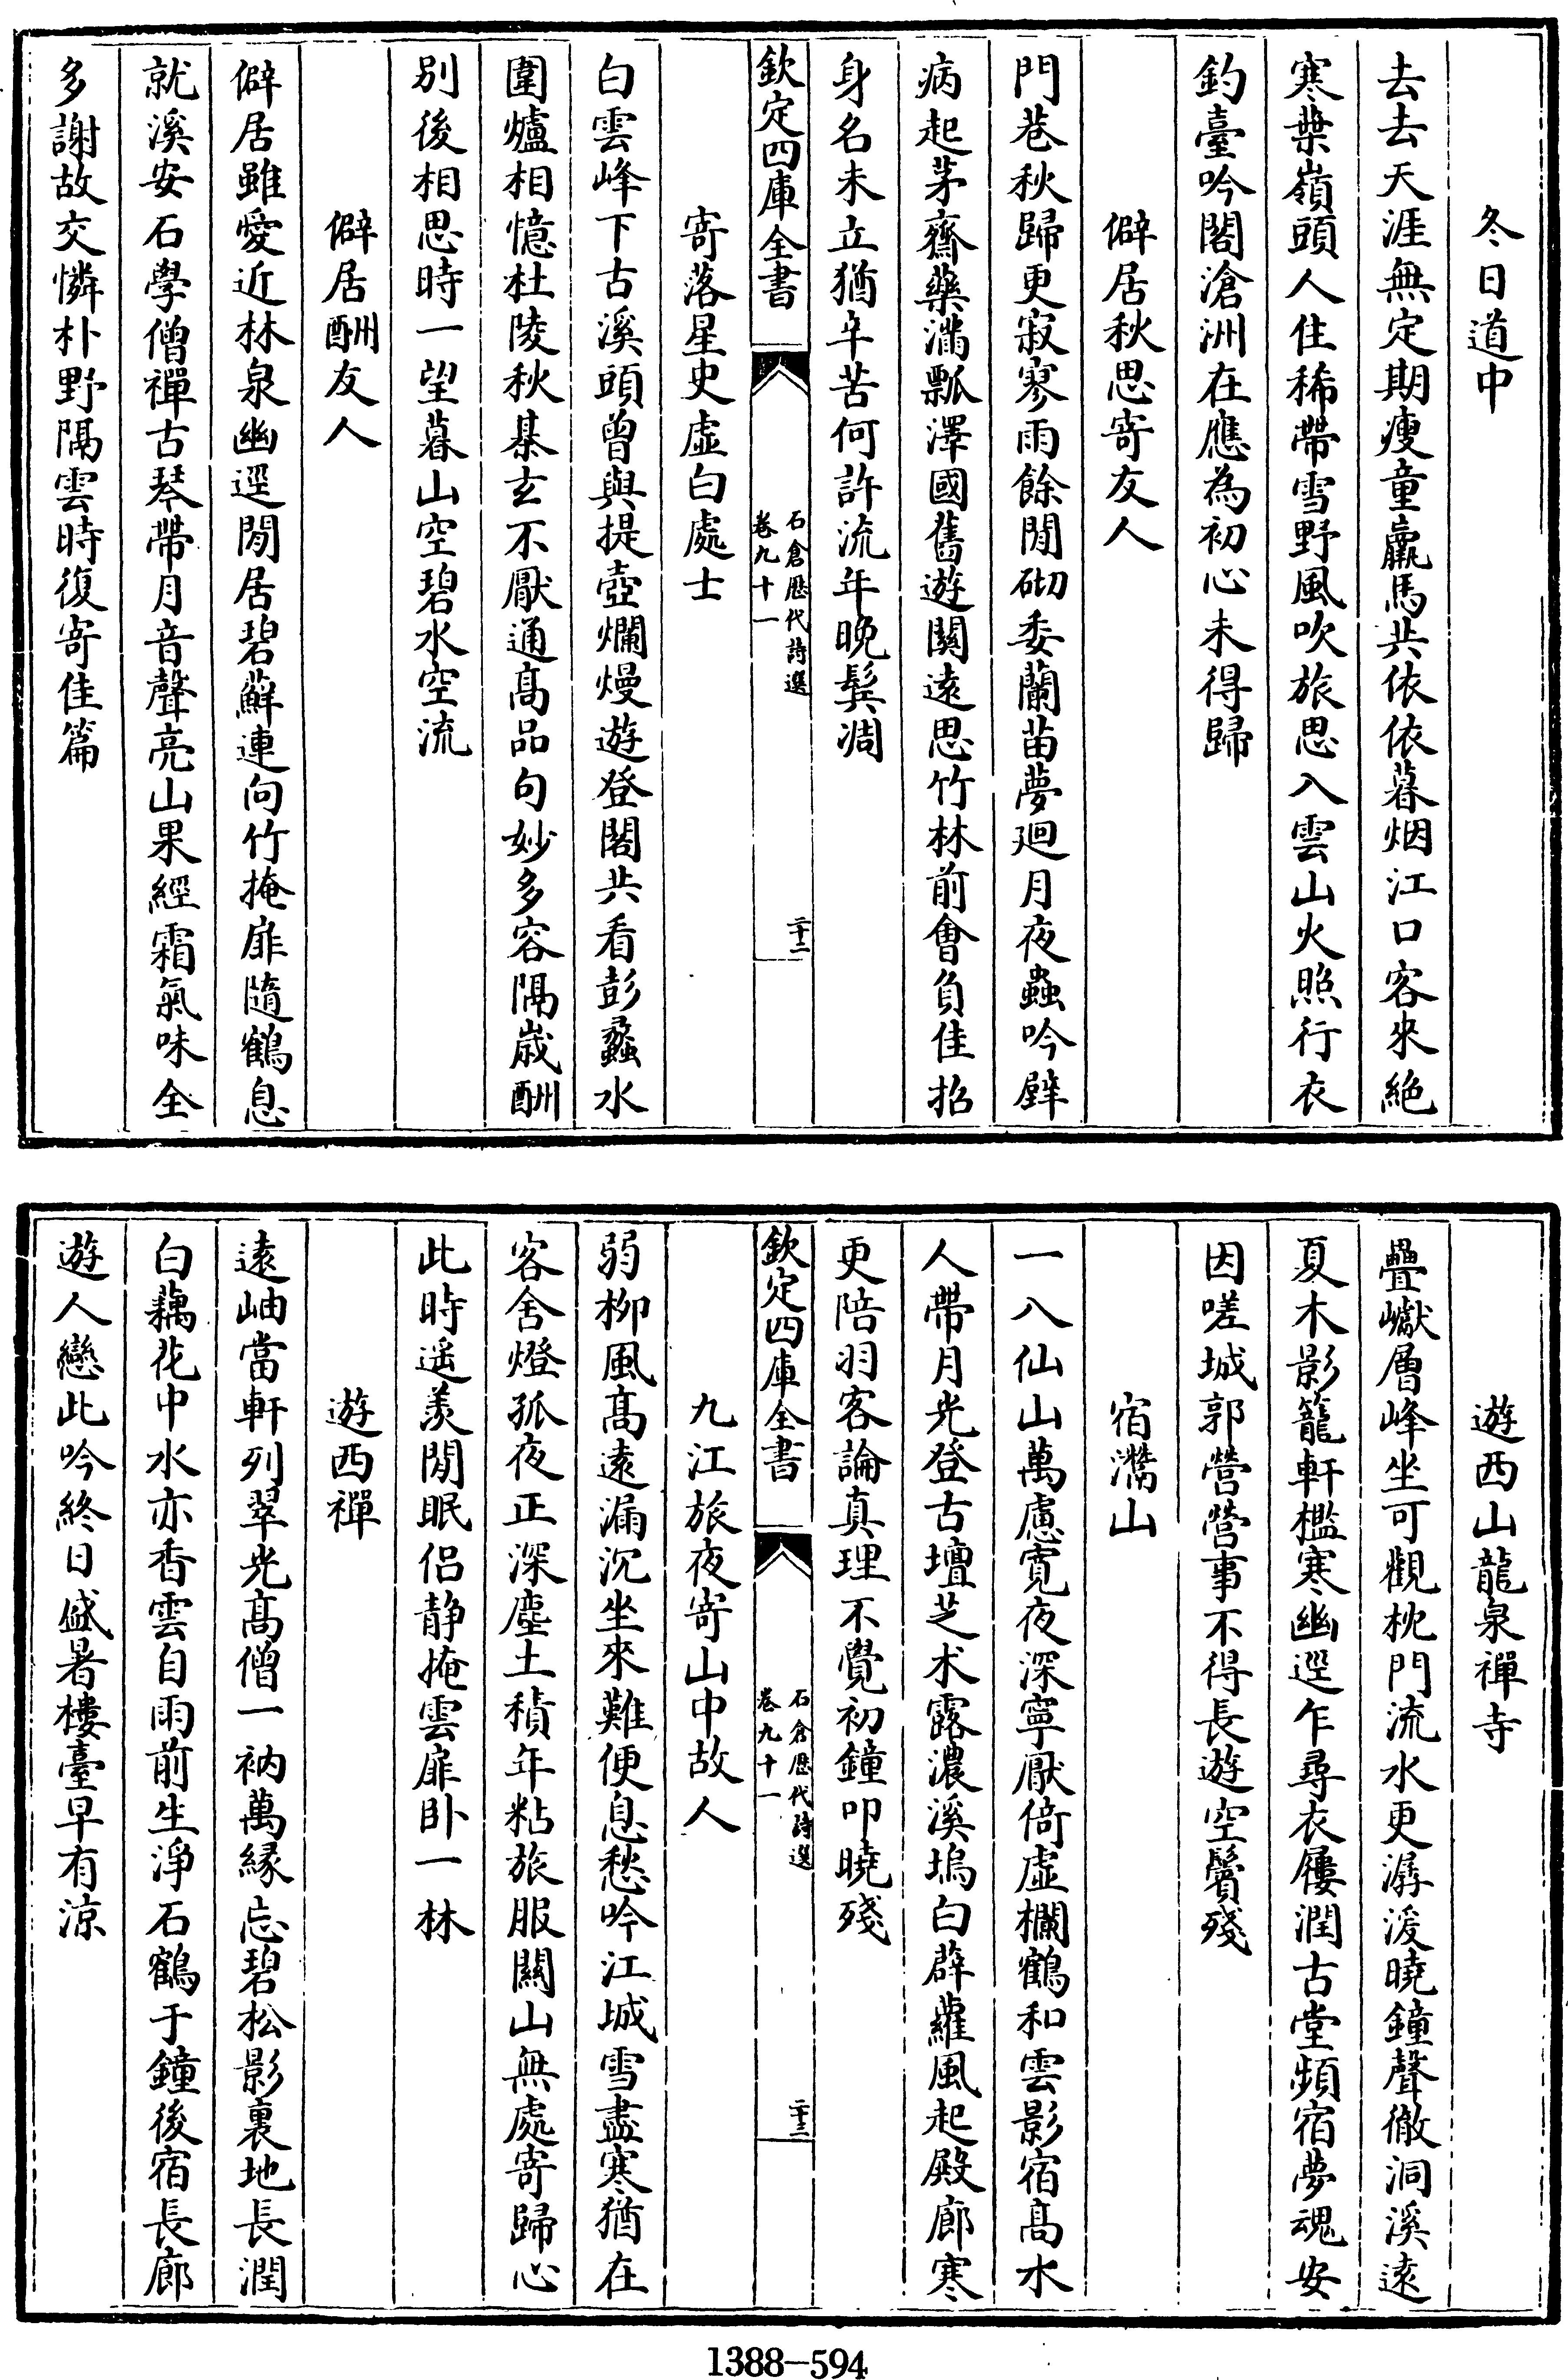 冬日道中
去去天涯無定期瘦童羸馬共依依暮烟江口客來絶
寒葉嶺頭人住稀帶雪野風吹旅思入雲山火照行衣
釣臺吟閣滄洲在應為初心未得歸
僻居秋思寄友人
門巷秋歸更寂寥雨餘閒砌委蘭苗夢迴月夜蟲吟壁
病起茅齋藥滿瓢澤國舊遊關遠思竹林前會負佳招
身名未立猶辛苦何許流年晚鬂凋
欽定四庫全書
石倉歷代詩選
卷九十一
二十二
寄落星史虛白處士
白雲峰下古溪頭曾與提壺爛熳遊登閣共看彭蠡水
圍爐相憶杜陵秋棊玄不厭通髙品句妙多容隔歲酬
别後相思時一望暮山空碧水空流
僻居酬友人
僻居雖愛近林泉幽逕閒居碧蘚連向竹掩扉隨鶴息
就溪安石學僧禪古琴帶月音聲亮山果經霜氣味全
多謝故交憐朴野隔雲時復寄佳篇
遊西山龍泉禪寺
疊巘層峰坐可觀枕門流水更潺湲曉鐘聲徹洞溪遠
夏木影籠軒檻寒幽逕乍尋衣屨潤古堂頻宿夢魂安
因嗟城郭營營事不得長遊空鬢殘
宿灊山
一入仙山萬慮寛夜深寧厭倚虛欄鶴和雲影宿髙木
人帶月光登古壇芝术露濃溪塢白薜蘿風起殿廊寒
更陪羽客論真理不覺初鐘叩曉殘
欽定四庫全書
石倉歷代詩選
卷九十一
二十三
九江旅夜寄山中故人
弱柳風髙遠漏沉坐來難便息愁吟江城雪盡寒猶在
客舍燈孤夜正深塵土積年粘旅服關山無處寄歸心
此時遥羨閒眠侣静掩雲扉卧一林
遊西禪
遠岫當軒列翠光髙僧一衲萬緣忘碧松影裏地長潤
白藕花中水亦香雲自雨前生淨石鶴于鐘後宿長廊
遊人戀此吟終日盛暑樓臺早有涼
1388-594